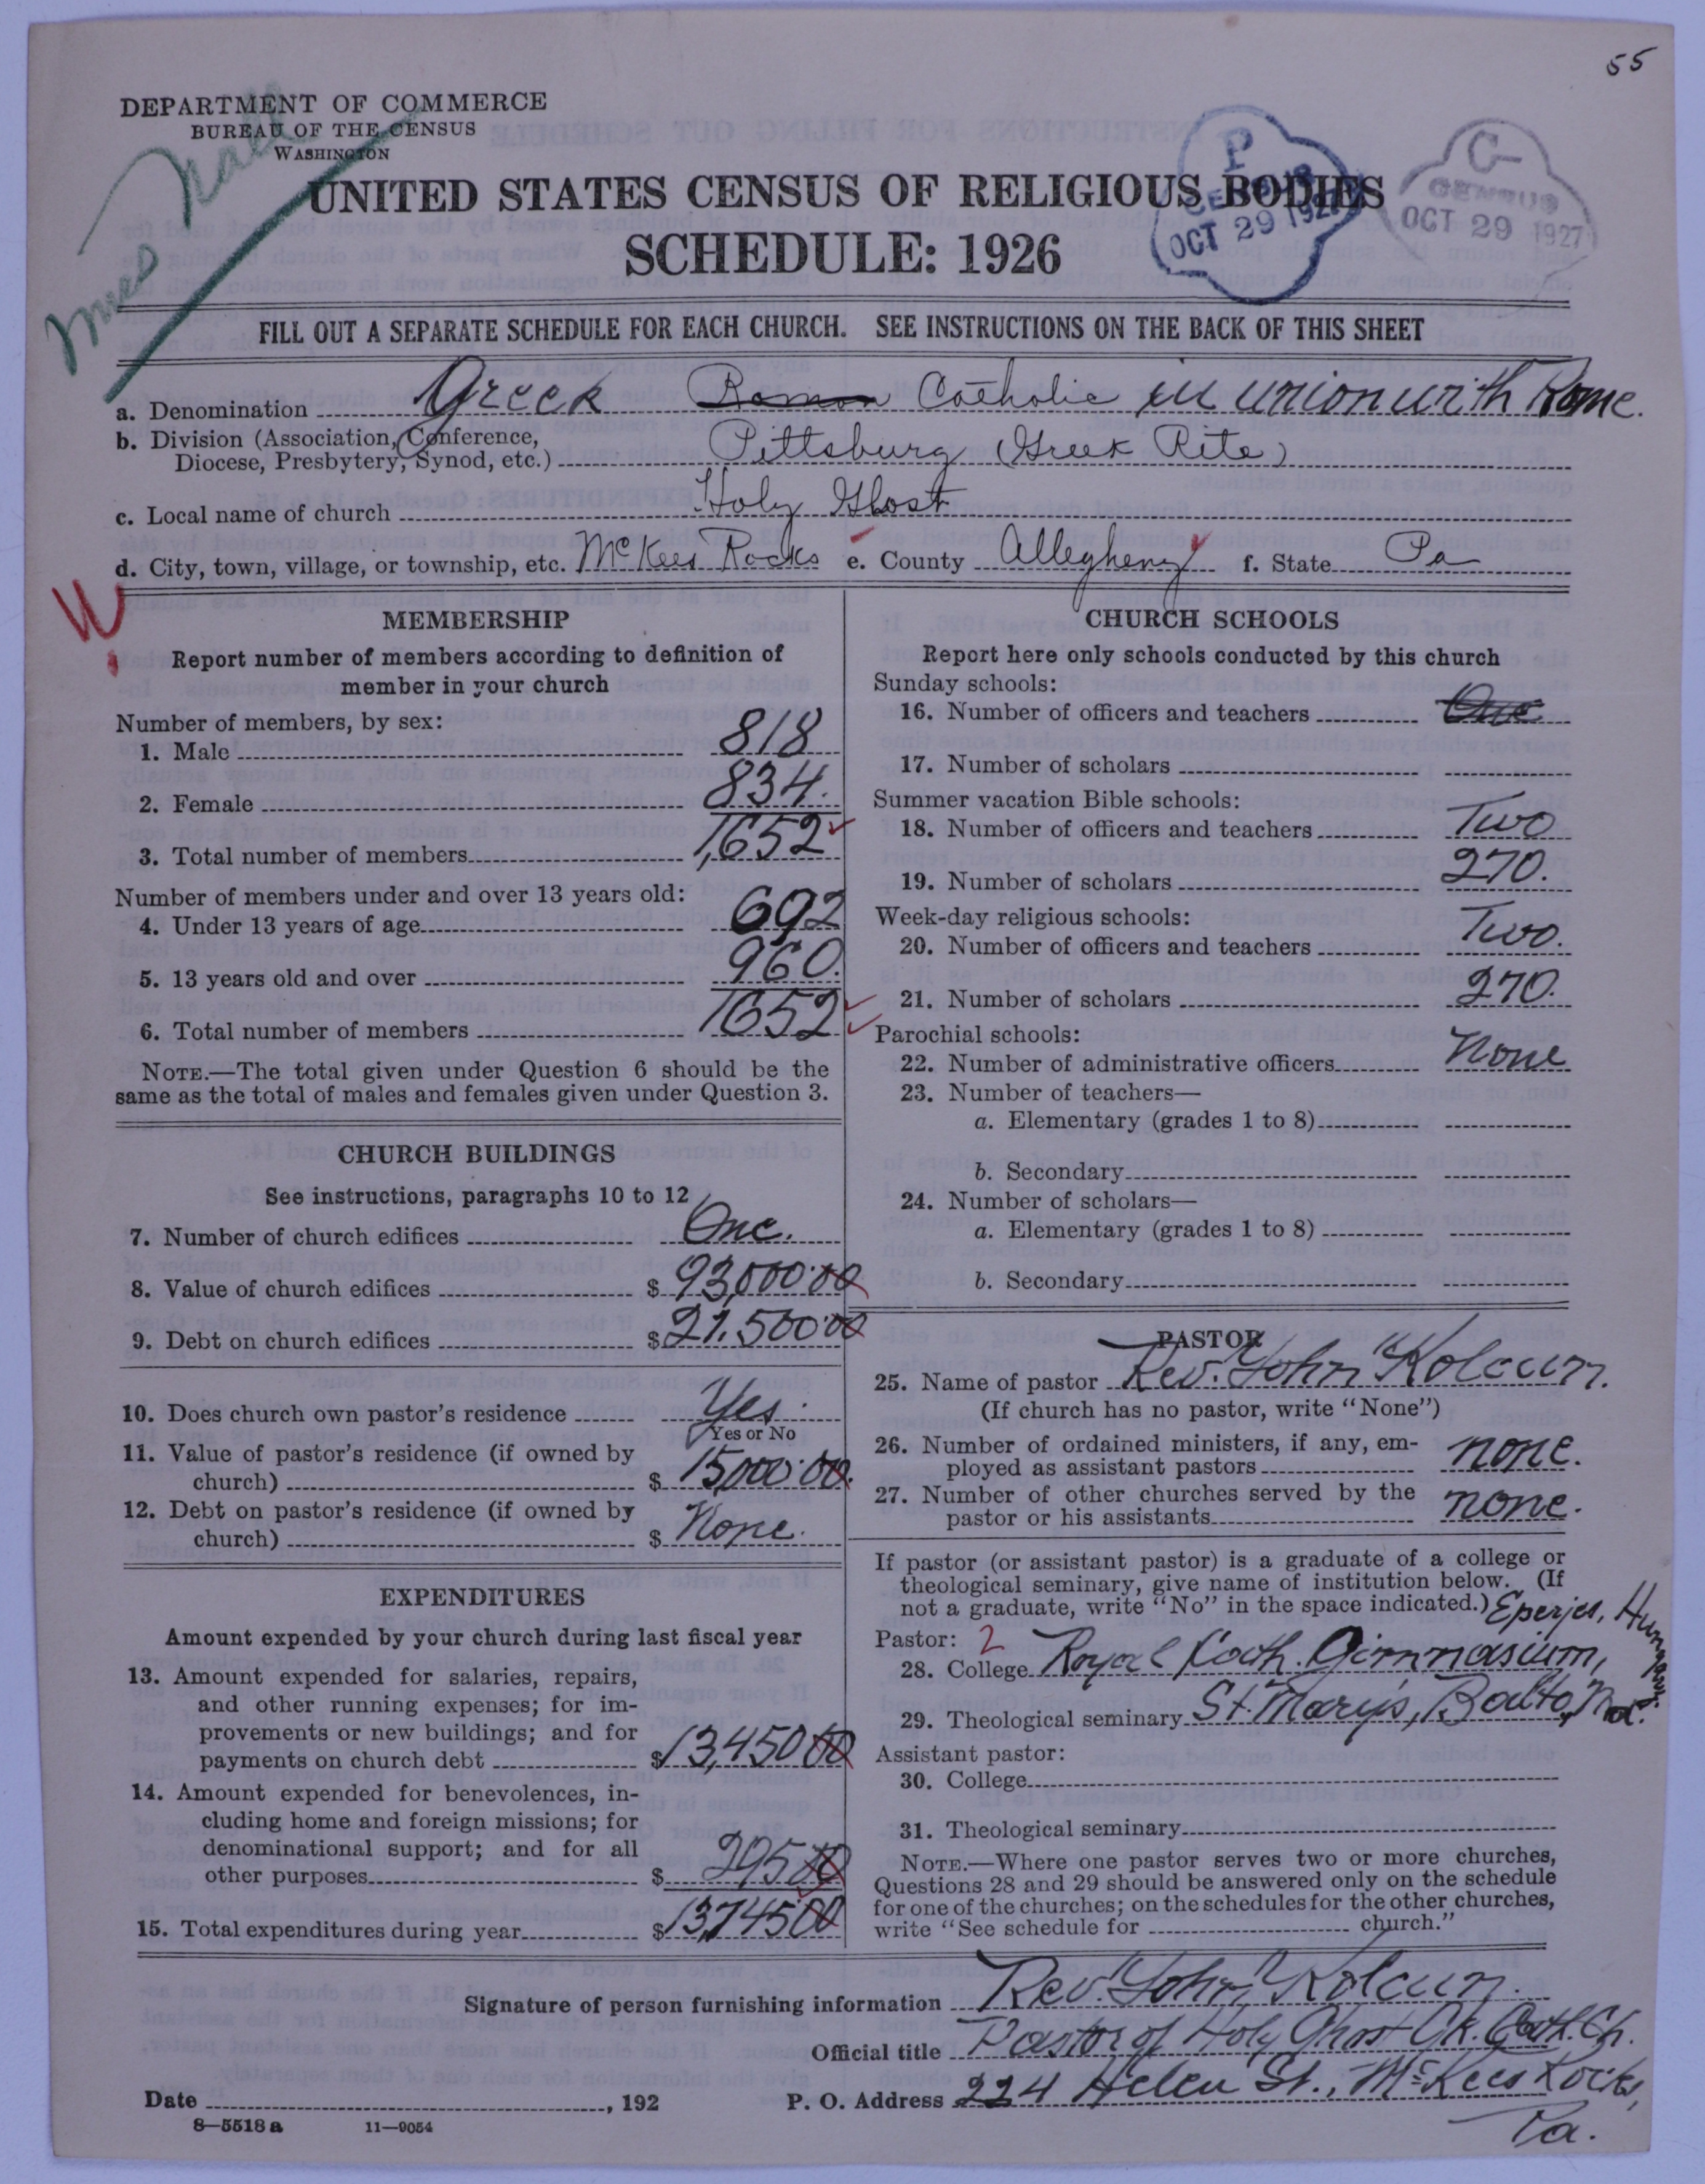 55
DEPARTMENT OF COMMERCE
BUREAU OF THE CENSUS
WASHINGTON
UNITED STATES CENSUS OF RELIGIOUS BODIES
SCHEDULE: 1926
P
CENSUS
OCT 29 1927
C
CENSUS
OCT 29 1927
FILL OUT A SEPARATE SCHEDULE FOR EACH CHURCH. SEE INSTRUCTIONS ON THE BACK OF THIS SHEET
a. Denomination Greek Roman Catholic in union with Rome.
b. Division (Association, Conference, Diocese, Presbytery, Synod, etc.) Pittsburg (Greek Rite)
c. Local name of church Holy Ghost
d. City, town, village, or township, etc. McKees Rocks e. County Allegheny f. State Pa
MEMBERSHIP
Report number of members according to definition of
member in your church
Number of members, by sex:
1. Male 818
2. Female 834.
3. Total number of members 1,652
Number of members under and over 13 years old:
4. Under 13 years of age 692
5. 13 years old and over 960.
6. Total number of members 1652
NOTE.—The total given under Question 6 should be the
same as the total of males and females given under Question 3.
CHURCH BUILDINGS
See instructions, paragraphs 10 to 12
7. Number of church edifices One.
8. Value of church edifices $ 93,000.00
9. Debt on church edifices $ 27.500.00
10. Does church own pastor's residence Yes.
Yes or No
11. Value of pastor's residence (if owned by
church) $ 15,000.00.
12. Debt on pastor's residence (if owned by
church) $ None.
EXPENDITURES
Amount expended by your church during last fiscal year
13. Amount expended for salaries, repairs,
and other running expenses; for im-
provements or new buildings; and for
payments on church debt $ 13,450 00
14. Amount expended for benevolences, in-
cluding home and foreign missions; for
denominational support; and for all
other purposes $ 295 00
15. Total expenditures during year $ 13,745 00
CHURCH SCHOOLS
Report here only schools conducted by this church
Sunday schools:
16. Number of officers and teachers One
17. Number of scholars
Summer vacation Bible schools:
18. Number of officers and teachers Two
19. Number of scholars 270.
Week-day religious schools:
20. Number of officers and teachers Two.
21. Number of scholars 270.
Parochial schools:
22. Number of administrative officers None
23. Number of teachers—
a. Elementary (grades 1 to 8)
b. Secondary
24. Number of scholars—
a. Elementary (grades 1 to 8)
b. Secondary
PASTOR
25. Name of pastor Rev. John Kolcun.
(If church has no pastor, write "None")
26. Number of ordained ministers, if any, em-
ployed as assistant pastors none.
27. Number of other churches served by the
pastor or his assistants none.
If pastor (or assistant pastor) is a graduate of a college or
theological seminary, give name of institution below. (If
not a graduate, write "No" in the space indicated.)
Pastor: 2
28. College Royal Cath. Gimnasium, Eperjes, Hungary.
29. Theological seminary St. Mary's, Balto, Md.
Assistant pastor:
30. College
31. Theological seminary
NOTE.—Where one pastor serves two or more churches,
Questions 28 and 29 should be answered only on the schedule
for one of the churches; on the schedules for the other churches,
write "See schedule for church."
Signature of person furnishing information Rev. John Kolcun.
Official title Pastor of Holy Ghost Gk. Cath. Ch.
Date , 192 P. O. Address 224 Helen St., McKees Rocks,
Pa.
8—5518 a 11—9054